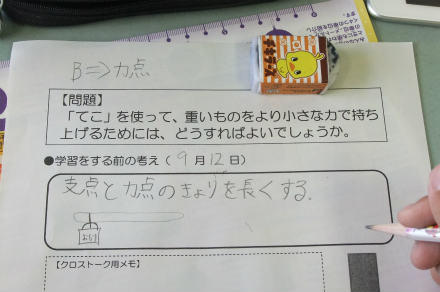 B⇒力点
チキラーズ
【問題】
「てこ」を使って、重いものをより小さな力で持ち
上げるためには、どうすればよいでしょうか。
●学習をする前の考え(9月12日)
支点と力点のきょりを長くする.
おもり
【クロストーク用メモ】